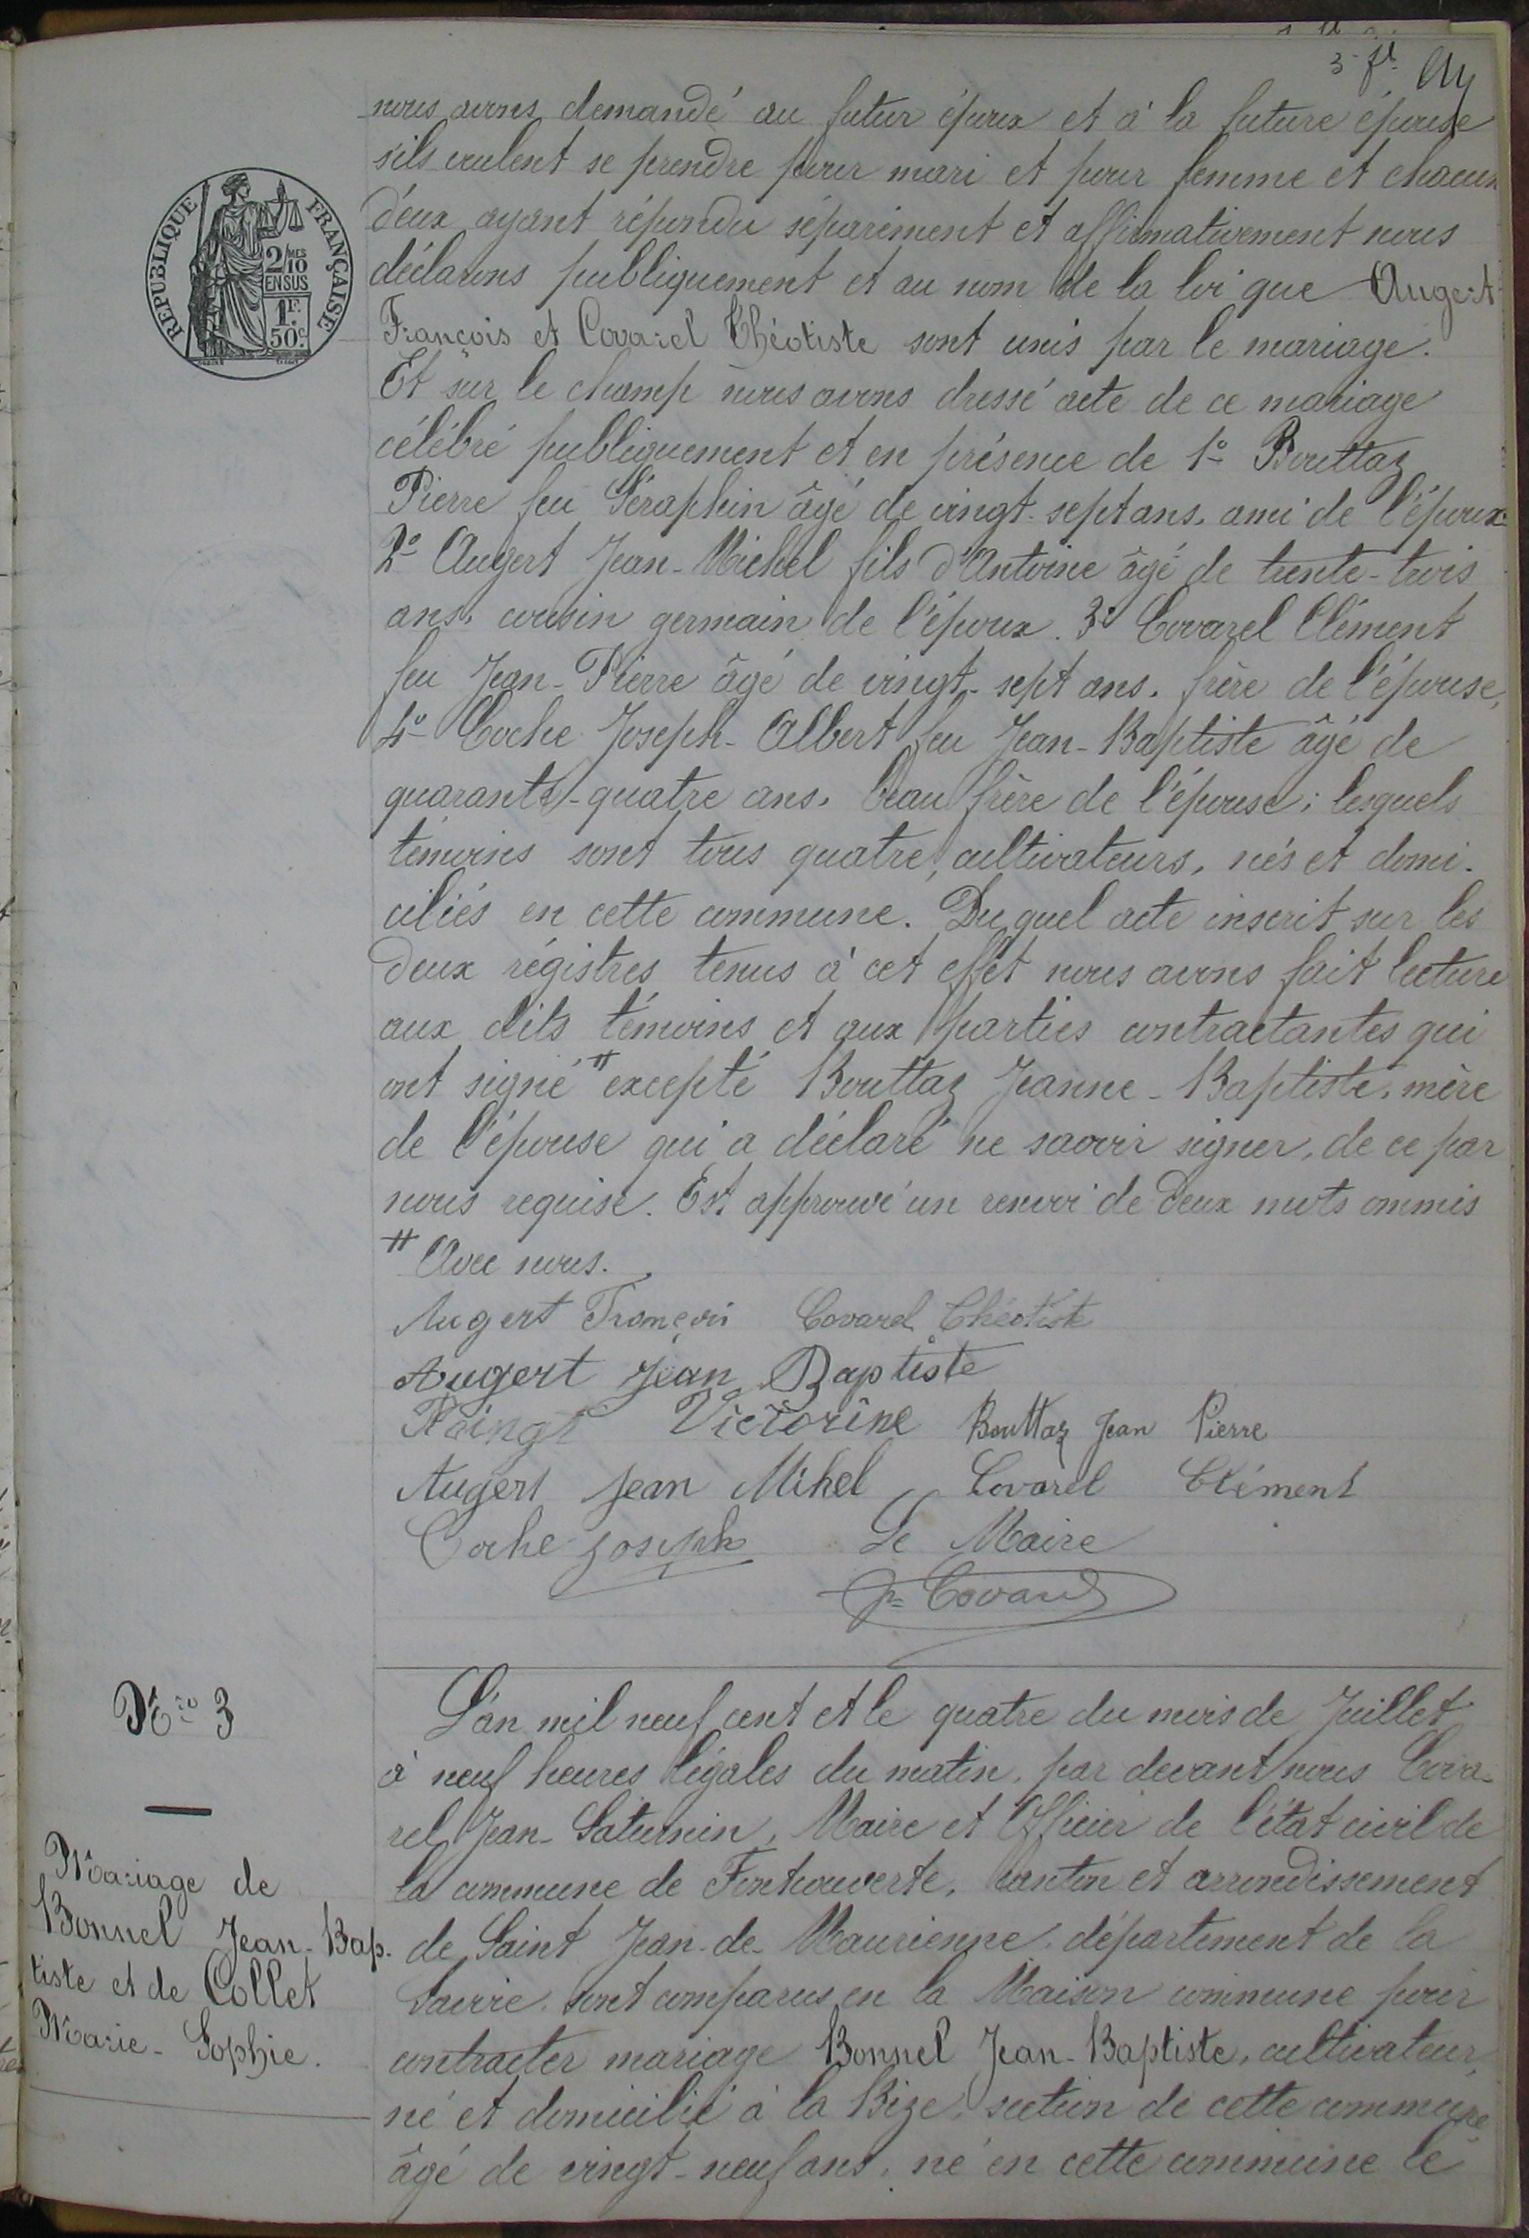 3 ft
nous avons demandé au futur époux et à la future épouse
s'ils veulent se prendre pour mari et pour femme et chacun
d'eux ayant répondu séparément et affirmativement nous
déclarons publiquement et au nom de la loi que Augert
François et Covarel Théotiste sont unis par le mariage.
Et sur le champ nous avons dressé acte de ce mariage
célébré publiquement et en présence de 1º Bouttaz
Pierre feu Séraphin âgé de vingt-sept ans, ami de l'époux
2º Augert Jean-Michel fils d'Antoine âgé de trente-trois
ans, cousin germain de l'époux. 3º Covarel Clément
feu Jean-Pierre âgé de vingt-sept ans, frère de l'épouse,
4º Coche Joseph-Albert feu Jean-Baptiste âgé de
quarante-quatre ans, beau frère de l'épouse; lesquels
témoins sont tous quatre, cultivateurs, nés et domi-
ciliés en cette commune. Du quel acte inscrit sur les
deux régistres tenus à cet effet nous avons fait lecture
aux dits témoins et aux parties contractantes qui
ont signé # excepté Bouttaz Jeanne-Baptiste, mère
de l'épouse qui a déclaré ne savoir signer, de ce par
nous requise. Est approuvé un renvoi de deux mots ommis
# Avec nous.
Augert François Covarel Théotiste
Augert Jean Baptiste
Raingt Victorine Bouttaz Jean Pierre
Augert Jean Mihel Covarel Clément
Coche Joseph Le Maire
Jn Covarel
REPUBLIQUE FRANÇAISE
2/10 MES
EN SUS
1F.
50c.
Nro 3
Mariage de
Bonnel Jean-Bap-
tiste et de Collet
Marie-Sophie.
L'an mil neuf cent et le quatre du mois de Juillet
à neuf heures légales du matin, par devant nous Cova-
rel Jean-Saturnin, Maire et Officier de l'état civil de
la commune de Fontcouverte, canton et arrondissement
de Saint Jean-de-Maurienne, département de la
Savoie, sont comparus en la Maison commune pour
contracter mariage Bonnel Jean-Baptiste, cultivateur,
né et domicilié à la Bize, section de cette commune
âgé de vingt-neuf ans, né en cette commune le